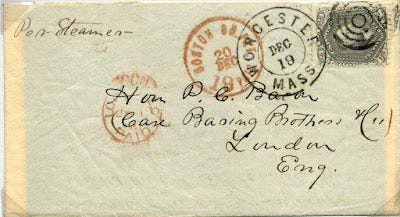 Per Steamer
BOSTON
20
DEC
19
WORCESTER
DEC
19
MASS
PAID
Hon P. C. Bacon
(Care Baring Brothers & Co)
London
Eng.